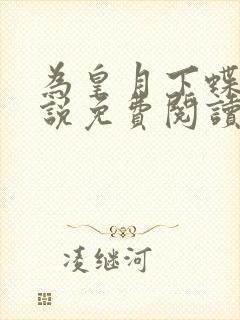 為皇月下蝶
說免費閱讀
凌继河